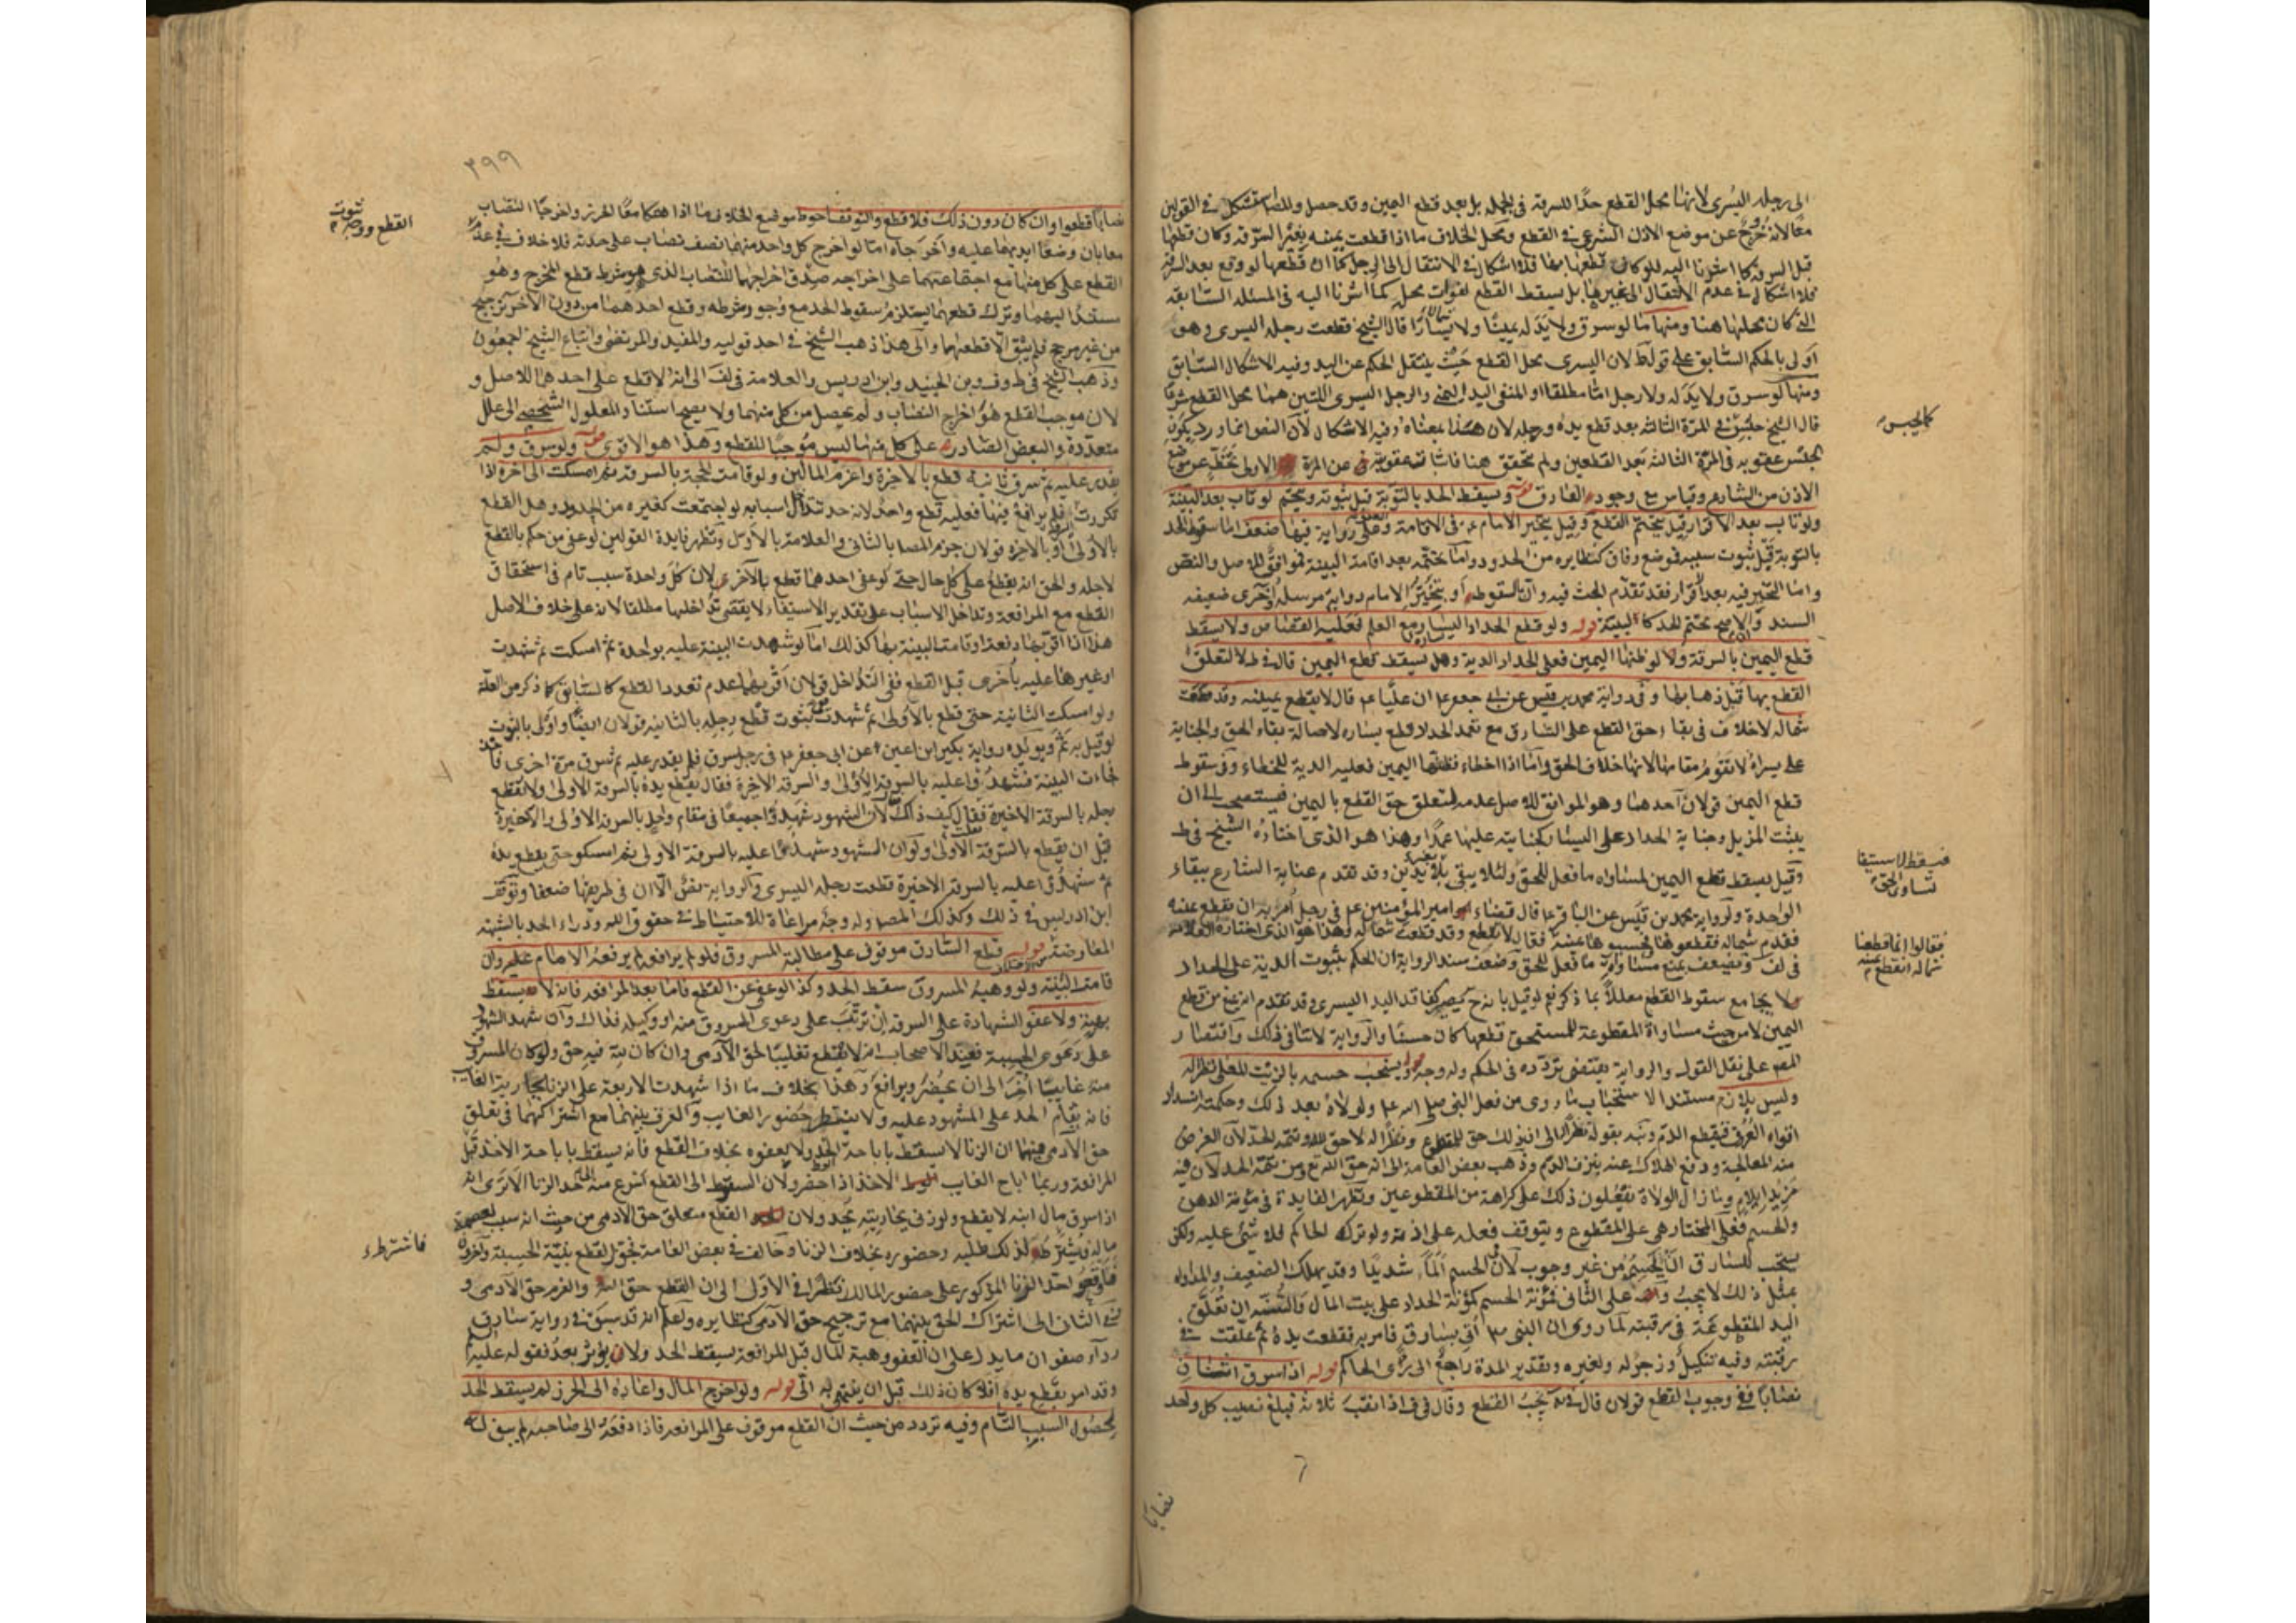 الى رجله اليسرى لانها محل القطع حدًا للسرقة فى الجملة بل بعد قطع اليمين وقد حصل والمصا استشكل فى القولين
معًا لانه خروج عن موضع الاذن الشرعى فى القطع ومحل الخلاف ما اذا قطعت يمينه بغير السرقة وكان قطعها
قبل السرقة كما اشرنا اليه فلو كان قطعها بها فلا اشكال فى الانتقال الى الرجل كما ان قطعها لو وقع بعد السرقة
فلا اشكال فى عدم الانتقال الى غيرها بل يسقط القطع لفوات محله كما اشرنا اليه فى المسئلة السابقة
التى كان محلها هنا ومنها ما لو سرق ولا يد له يمينًا ولا يسارًا قال الشيخ قطعت رجله اليسرى وهو
اولى بالحكم السابق على قوله لان اليسرى محل القطع حيث ينتقل الحكم عن اليد وفيه الاشكال السابق
ومنها لو سرق ولا يد له ولا رجل اما مطلقا او المنفى اليد اليمنى والرجل اليسرى اللتين هما محل القطع شرعًا
قال الشيخ حبس فى المرة الثالثة بعد قطع يده ورجله لان هذا بمعناه وفيه الاشكال لان النص انما ورد بكون
الحبس عقوبة فى المرة الثالثة بعد القطعين ولم يتحقق هنا فاثبات عقوبة فى عن المرة الاولى تخطٍ عن موضع
الاذن من الشارع وقياس مع وجود الفارق قوله ويسقط الحد بالتوبة قبل ثبوته ويتحتم لو تاب بعد البينة
ولو تاب بعد الاقرار قيل يتحتم القطع وقيل يتخير الامام ع فى الاقامة والعفو على رواية فيها ضعف اما سقوط الحد
بالتوبة قبل ثبوت سببه فموضع وفاق كنظايره من الحدود واما تحتمه بعد اقامة البينة فموافق للاصل والنص
واما التخير فيه بعد الاقرار فقد تقدم البحث فيه وان بالسقوط او بتخيير الامام رواية مرسلة واخرى ضعيفة
السند والاصح تحتم الحد كالبينة قوله ولو قطع الحداد اليسار مع العلم فعليه القصاص ولا يسقط
قطع اليمين بالسرقة ولو ظنها اليمين فعلى الحداد الدية وهل يسقط قطع اليمين قال فى ط لا لتعلق
القطع بها قبل ذهابها وفى رواية محمد بن قيس عن ابى جعفر ع ان عليًا ع قال لا يقطع يمينه وقد قطعت
شماله لا خلاف فى بقاء حق القطع على السارق مع تعمد الحداد قطع يساره لاصالة بقاء الحق والجناية
على يسراه لا تقوم مقامها لانها خلاف الحق واما اذا اخطاء فظنها اليمين فعليه الدية للخطاء وفى سقوط
قطع اليمين قولان احدهما وهو الموافق للاصل عدمه لتعلق حق القطع باليمين فيستصحب الى ان
يثبت المزيل وجناية الحداد على اليسار كجنايته عليها عمدًا وهذا هو الذى اختاره الشيخ فى ط
وقيل يسقط قطع اليمين لمساواة ما فعل للحق ولئلا يبقى بلا يدين وقد تقدم عناية الشارع ببقاء
الواحدة ولرواية محمد بن قيس عن الباقر ع قال قضاء امير المؤمنين ع فى رجل امر به ان يقطع يمينه
فقدم شماله فقطعوها وحسبوها يمينه فقال لا يقطع وقد قطعت شماله وهذا هو الذى اختاره العلامة
فى لف ويضعف بمنع مساواة ما فعل للحق وضعف سند الرواية ان الحكم بثبوت الدية على الحداد
لا يجامع سقوط القطع معللاً بما ذكر نعم لو قيل بانه ح يصير كفاقد اليد اليسرى وقد تقدم انه يمنع من قطع
اليمين لا من حيث مساواة المقطوعة للمستحق قطعها كان حسنًا والرواية لا تنافى ذلك واقتصار
المص على نقل القول والرواية يقتضى تردده فى الحكم وله وجه قوله ويستحب حسمه بالزيت المغلى نظرا له
وليس بلازم مستند الاستحباب ما روى من فعل النبى صلى الله عليه ولولاه بعد ذلك وحكمته انسداد
افواه العروق فينقطع الدم ونبه بقوله نظرا له الى ان ذلك حق للمقطوع ونظرا له لا حق لله وتتمة للحد لان الغرض
منه المعالجة ودفع الهلاك عنه بنزف الدم وذهب بعض العامة الى انه حق الله تع ومن تتمة الحد لان فيه
مزيد ايلام وما زال الولاة يفعلون ذلك على كراهة من المقطوعين وتظهر الفايدة فى مؤنة الدهن
والحسم فعلى المختار هى على المقطوع ويتوقف فعله على اذنه ولو تركه الحاكم فلا شئ عليه ولكن
يستحب للسارق ان يحسمه من غير وجوب لان فى الحسم المًا شديدًا وقد يهلك الضعيف والمداواه
بمثل ذلك لا يجب وعلى الثانى فمؤنة الحسم كمؤنة الحداد على بيت المال والسنة ان تعلق
اليد المقطوعة فى رقبته لما روى ان النبى ص اتى بسارق فامر به فقطعت يده ثم علقت فى
رقبته وفيه تنكيل وزجر له ولغيره وتقدير المدة راجع الى راى الحاكم قوله اذا سرق اثنان
نصابًا ففى وجوب القطع قولان قال فى يه يجب القطع وقال فى ف اذا نقب ثلاثة فبلغ نصيب كل واحد
كالحبس
فيسقط لاستيفا
تساوى الحق
فقالوا انما قطعنا
شماله انقطع يمينه
نصابًا
٣٩٩
نصابًا قطعوا وان كان دون ذلك فلا قطع والتوقف احوط موضع الخلاف ما اذا هتكا معًا الحرز واخرجا النصاب
معا بان وضعا ايديهما عليه واخرجاه اما لو اخرج كل واحد منهما نصف نصاب على حدته فلا خلاف فى عدم
القطع على كل منهما مع اجتماعهما على اخراجه صدق اخراجهما للنصاب الذى هو شرط قطع المخرج وهو
مستندًا اليهما وترك قطعهما يستلزم سقوط الحد مع وجود شرطه وقطع احدهما من دون الاخر ترجيح
من غير مرجح فلم يبق الا قطعهما والى هذا ذهب الشيخ فى احد قوليه والمفيد والمرتضى واتباع الشيخ اجمعون
وذهب الشيخ فى ط وف وبن الجنيد وابن ادريس والعلامة فى لف الى انه لا قطع على احدهما للاصل و
لان موجب القطع هو اخراج النصاب ولم يحصل من كل منهما ولا يصح استناد المعلول الشخصى الى علل
متعددة والبعض الصادر عن كل منهما ليس موجبًا للقطع وهذا هو الاقوى قوله ولو سرق ولم
يقدر عليه ثم سرق ثانية قطع بالاخيرة واغرم المالين ولو قامت الحجة بالسرقة ثم امسكت الى اخره اذا
تكررت فلم يرافع فيها فعليه قطع واحد لانه حد تتداخل اسبابه لو اجتمعت كغيره من الحدود وهل القطع
بالاولى او بالاخيرة قولان جزم المصا بالثانى والعلامة بالاول وتظهر فايدة القولين لو عفى من حكم بالقطع
لاجله والحق انه يقطع على كل حال حتى لو عفى احدهما قطع بالاخرى لان كل واحدة سبب تام فى استحقاق
القطع مع المرافعة وتداخل الاسباب على تقدير الاستيفاء لا يقتضى تداخلها مطلقا لانه على خلاف الاصل
هذا اذا اقر بها دفعة او قامت البينة بها كذلك اما لو شهدت البينة عليه بواحدة ثم امسكت ثم شهدت
او غيرها عليه باخرى قبل القطع ففى التداخل قولان اقربهما عدم تعدد القطع كالسابق لما ذكر من العلة
ولو امسكت الثانية حتى قطع بالاولى ثم شهدت ففى ثبوت قطع رجله بالثانية قولان ايضًا واولى بالثبوت
لو قيل به ثم ويؤيده رواية بكير ابن اعين عن ابى جعفر ع فى رجل سرق فلم يقدر عليه ثم سرق مرة اخرى فاخذ
فجاءت البينة فشهدوا عليه بالسرقة الاولى والسرقة الاخيرة فقال يقطع يده بالسرقة الاولى ولا تقطع
رجله بالسرقة الاخيرة فقيل كيف ذلك قال لان الشهود شهدوا جميعًا فى مقام واحد بالسرقة الاولى والاخيرة
قبل ان يقطع بالسرقة الاولى ولو ان الشهود شهدوا عليه بالسرقة الاولى ثم امسكوا حتى يقطع يده
ثم شهدوا عليه بالسرقة الاخيرة قطعت رجله اليسرى والرواية نص الا ان فى طريقها ضعفا وتوقف
ابن ادريس فى ذلك وكذلك المصا وله وجه مراعاة للاحتياط فى حقوق الله ودراء الحد بالشبهة
المعارضة قوله قطع السارق موقوف على مطالبة المسروق فلو لم يرافعه لم يرفعه الامام عليه وان
قامت البينة ولو وهبه المسروق سقط الحد وكذا لو عفى عن القطع فاما بعد المرافعة فانه لا يسقط
بهبة ولا عفو الشهادة على السرقة ان ترتبت على دعوى المسروق منه او وكيله فذاك وان شهد الشهود
على دعوى الحسبة فعند الاصحاب انه لا يقطع تغليبًا لحق الآدمى وان كان لله فيه حق ولو كان المسروق
منه غايبًا اخر الى ان يحضر ويرافع وهذا بخلاف ما اذا شهدت الاربعة على الزنا بجارية الغايب
فانه يقام الحد على المشهود عليه ولا ينتظر حضور الغايب والفرق بينهما مع اشتراكهما فى تعلق
حق الآدمى فيهما ان الزنا لا يسقط باباحة الجد ولا بعفوه بخلاف القطع فانه يسقط باباحة الاخذ قبل
المرافعة وربما اباح الغايب الاخذ اذا حضر ولان السقوط الى القطع اسرع منه الى حد الزنا الا ترى انه
اذا سرق مال ابنه لا يقطع ولو زنى بجاريته يحد ولان القطع متعلق حق الادمى من حيث انه سبب لعصمة
ماله فيشترط لذلك طلبه وحضوره بخلاف الزنا وخالف فى بعض العامة فجوز القطع ببينة الحسبة واخرون
فاوقفوا حد الزنا المذكور على حضور المالك نظرًا فى الاول الى ان القطع حق الله والغرم حق الآدمى و
فى الثانى الى اشتراك الحق بينهما مع ترجيح حق الآدمى كنظايره واعلم انه قد سبق فى رواية سارق
رداء صفوان ما يدل على ان العفو وهبة المال قبل المرافعة يسقط الحد ولا يؤثر بعد لقوله عليه
وقد امر بقطع يده افلا كان ذلك قبل ان ينتهى به الى قوله ولو اخرج المال واعاده الى الحرز لم يسقط الحد
لحصول السبب التام وفيه تردد من حيث ان القطع موقوف على المرافعة فاذا دفعه الى صاحبه لم يبق له
القطع ووجه ثبوت
فاشترط